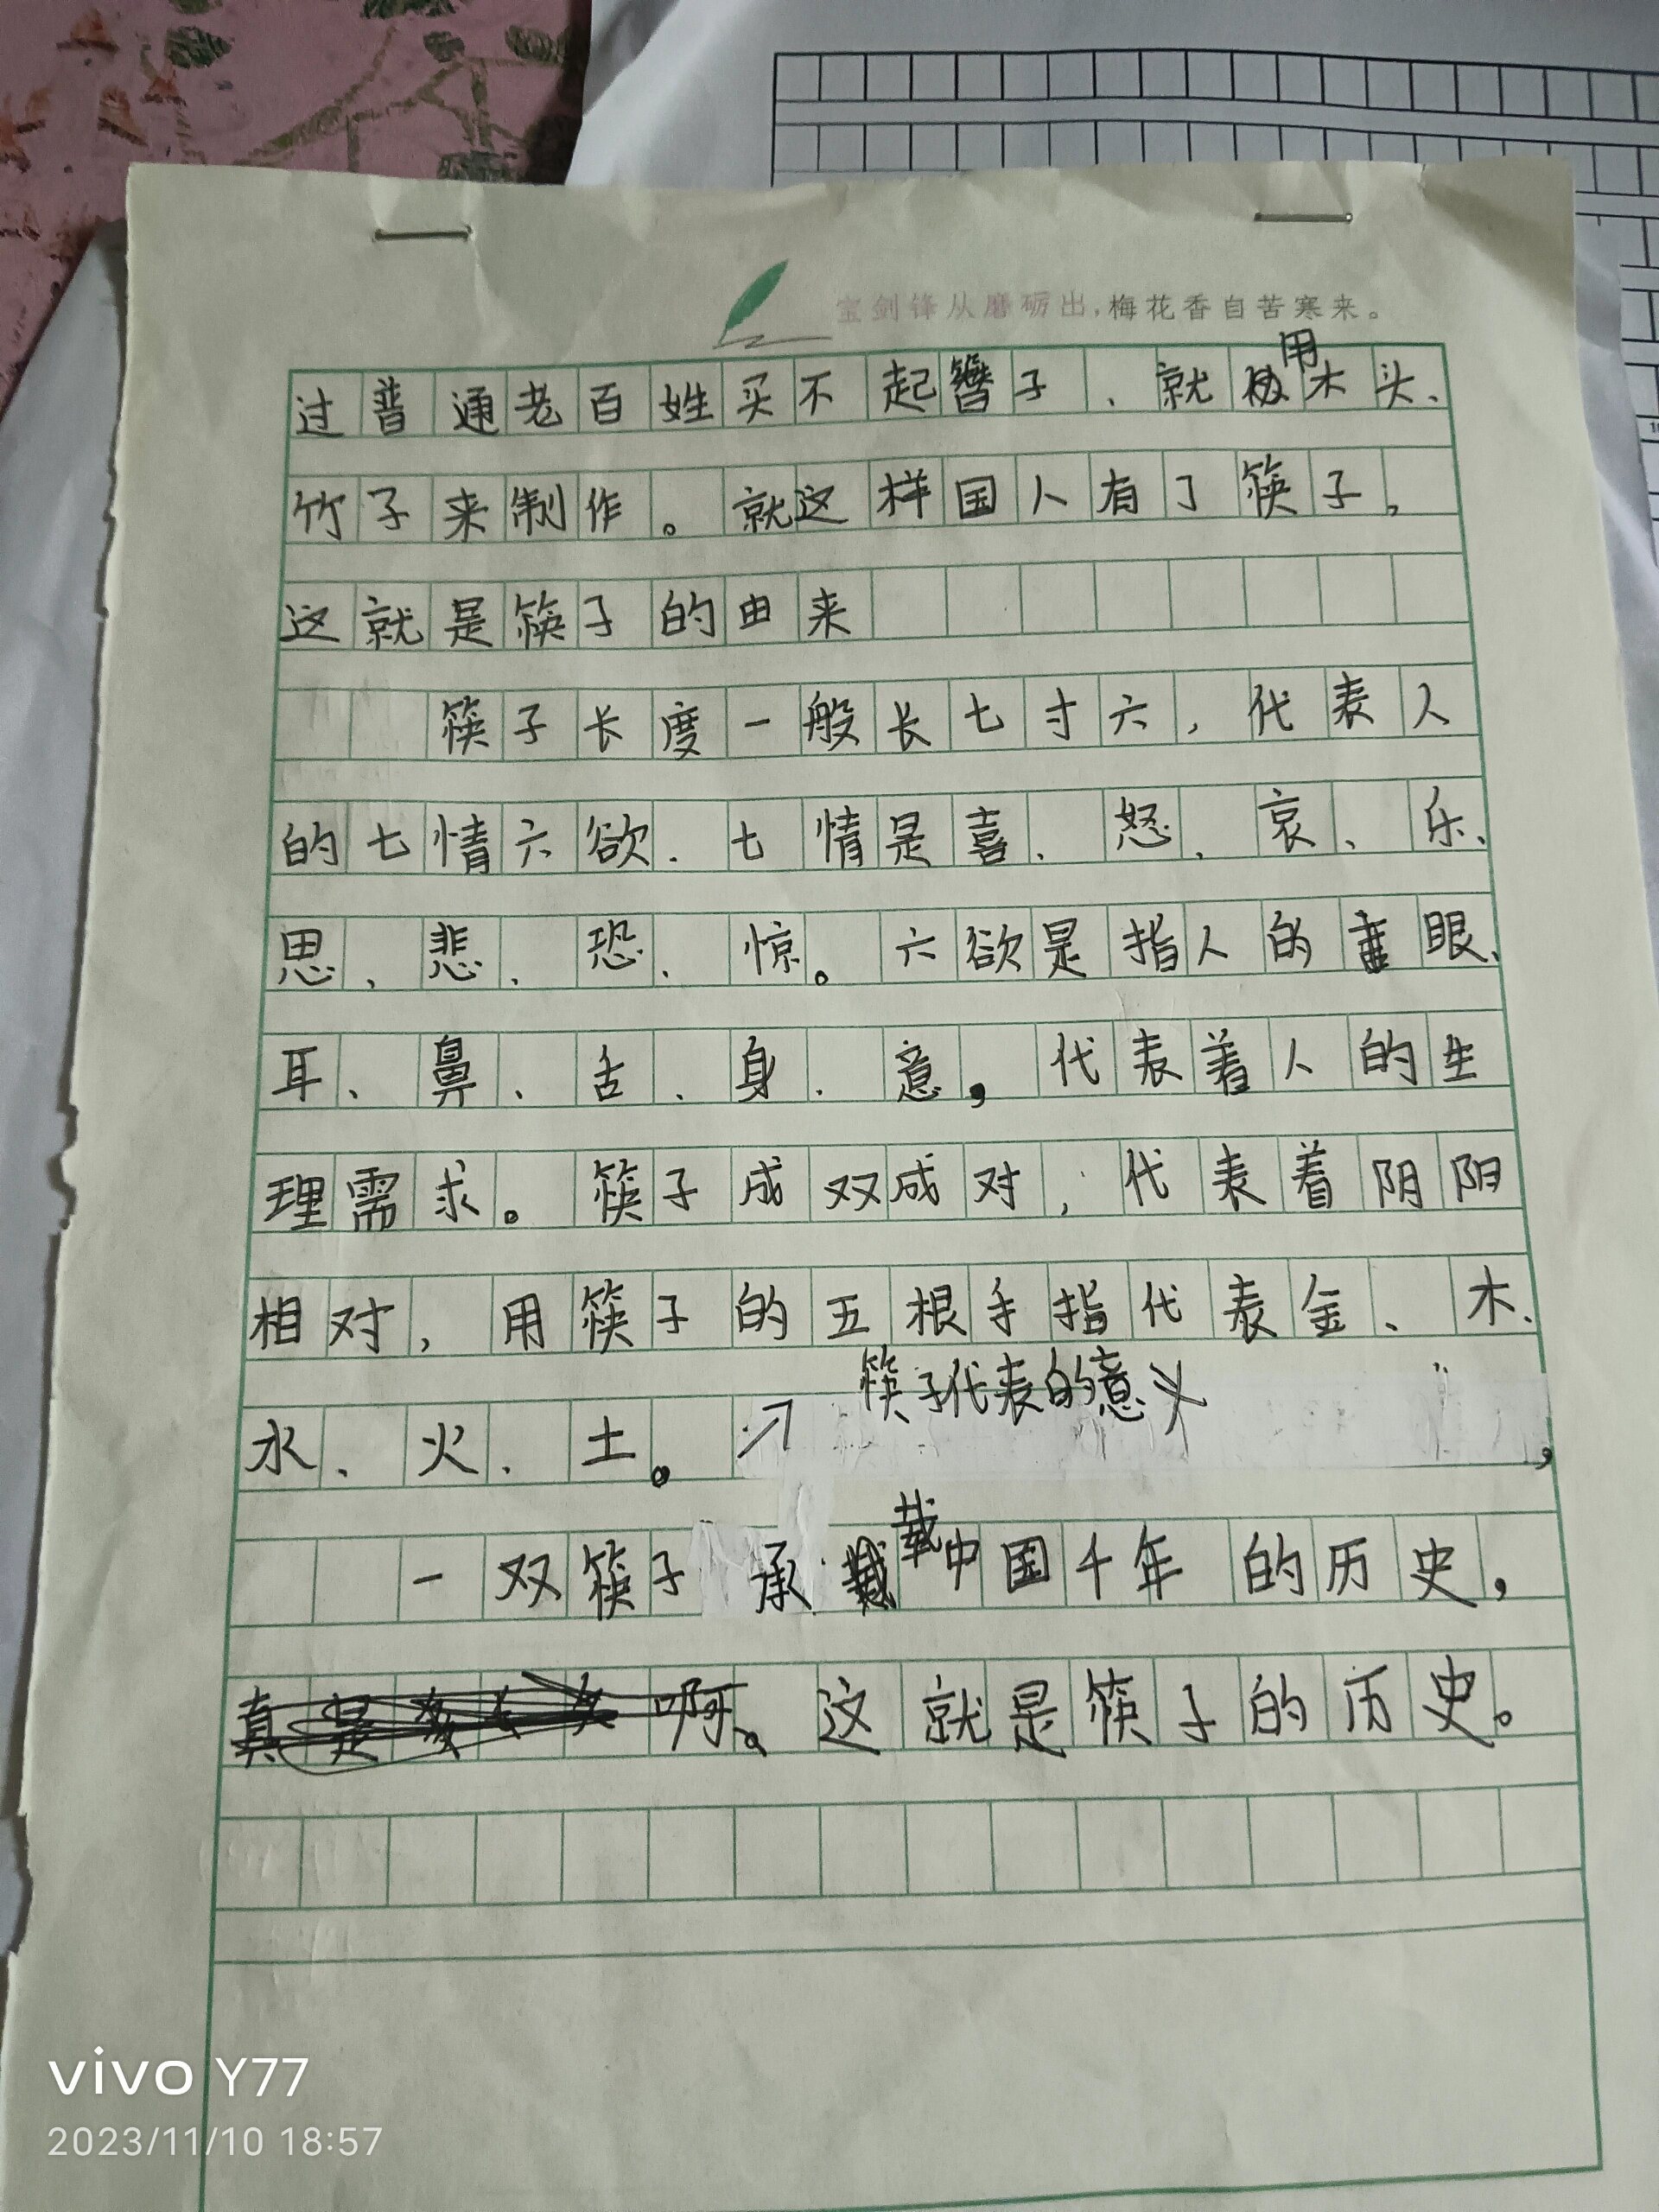 宝剑锋从磨砺出,梅花香自苦寒来。
过普通老百姓买不起簪子、就用木头、
竹子来制作。就这样国人有了筷子。
这就是筷子的由来
筷子长度一般长七寸六,代表人
的七情六欲.七情是喜、怒、哀、乐、
思、悲、恐、惊。六欲是指人的眼、
耳、鼻、舌、身、意,代表着人的生
理需求。筷子成双成对,代表着阴阴
相对,用筷子的五根手指代表金、木、
筷子代表的意义
水、火、土。
一双筷子承载中国千年的历史,
啊。这就是筷子的历史。
vivo Y77
2023/11/10 18:57